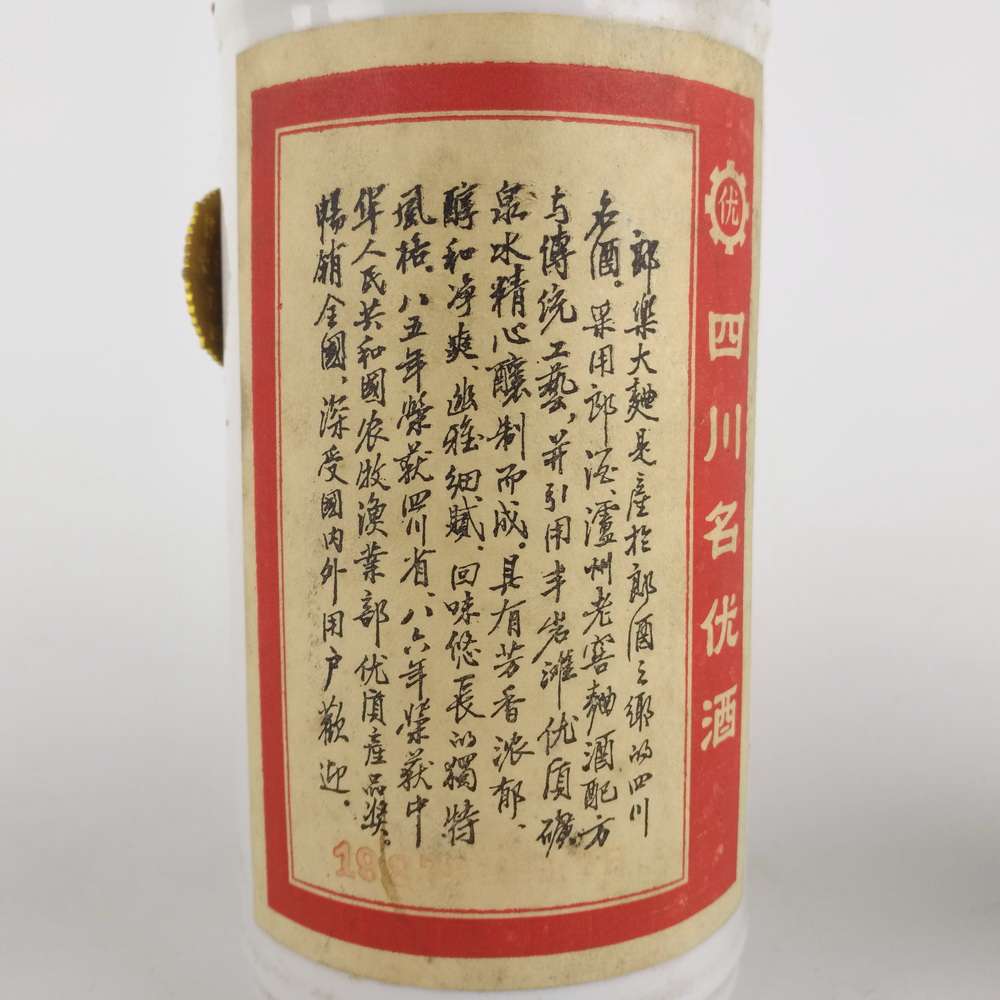 优
四川名优酒
郎樂大麯是產於郎酒之鄉的四川
名酒。采用郎酒、瀘州老窖麯酒配方
与傳統工藝，并引用丰岩滩优质礦
泉水精心釀制而成。具有芳香浓郁、
醇和净爽、幽雅细腻、回味悠長的獨特
風格。八五年榮获四川省、八六年榮获中
华人民共和國农牧漁業部优质產品奖。
暢銷全國、深受國内外用户歡迎。
198